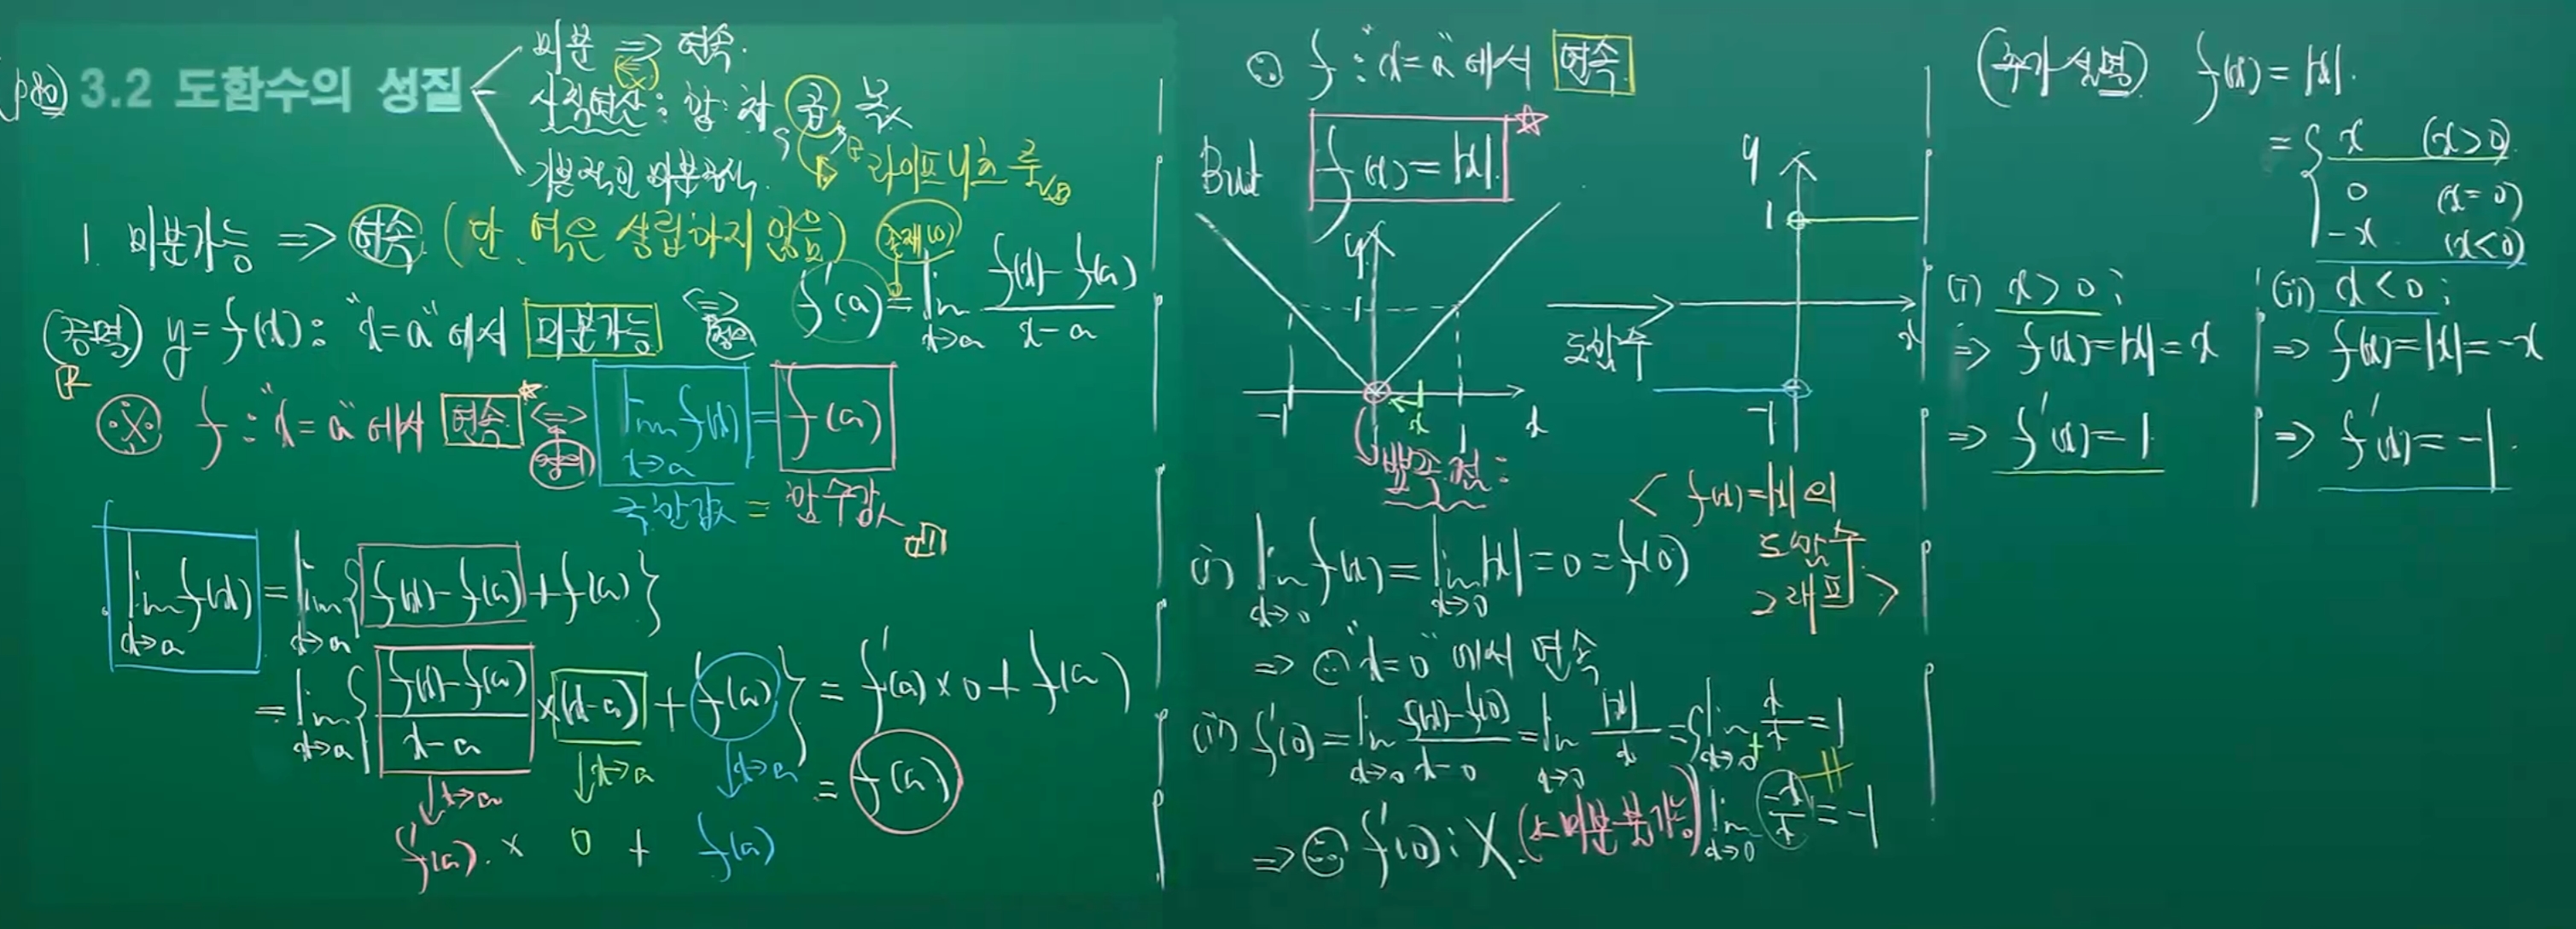 (p80) 3.2 도함수의 성질
미분 ⇒ 연속.
(×)
사칙연산 : 합. 차 곱 몫
기본적인 미분공식.
라이프니츠 룰
1. 미분가능 ⇒ 연속 (단, 역은 성립하지 않음)
존재(o)
(증명) y = f(x) : "x=a"에서 미분가능 ⇔ f'(a) = lim x→a f(x)-f(a) / x-a
정의
※ f : "x=a"에서 연속 ⇔ lim x→a f(x) = f(a)
정의
극한값 = 함수값
lim x→a f(x) = lim x→a { f(x)-f(a) + f(a) }
= lim x→a { f(x)-f(a) / x-a × (x-a) + f(a) } = f'(a) × 0 + f(a)
↓x→a ↓x→a ↓x→a = f(a)
f'(a). × 0 + f(a)
∴ f : "x=a"에서 연속
But f(x) = |x|.
y
1
-1 1 x
x
도함수
y
1
x
-1
뾰족점 :
< f(x)=|x| 의
도함수
그래프 >
(i) lim x→0 f(x) = lim x→0 |x| = 0 = f(0)
⇒ ∴ "x=0"에서 연속
(ii) f'(0) = lim x→0 f(x)-f(0) / x-0 = lim x→0 |x| / x = { lim x→0+ x / x = 1
≠
lim x→0 -x / x = -1
⇒ ∴ f'(0) : X. (미분불가능)
(추가설명) f(x) = |x|.
= { x (x>0)
0 (x=0)
-x (x<0)
(i) x > 0 ;
⇒ f(x) = |x| = x
⇒ f'(x) = 1
(ii) x < 0 ;
⇒ f(x) = |x| = -x
⇒ f'(x) = -1.